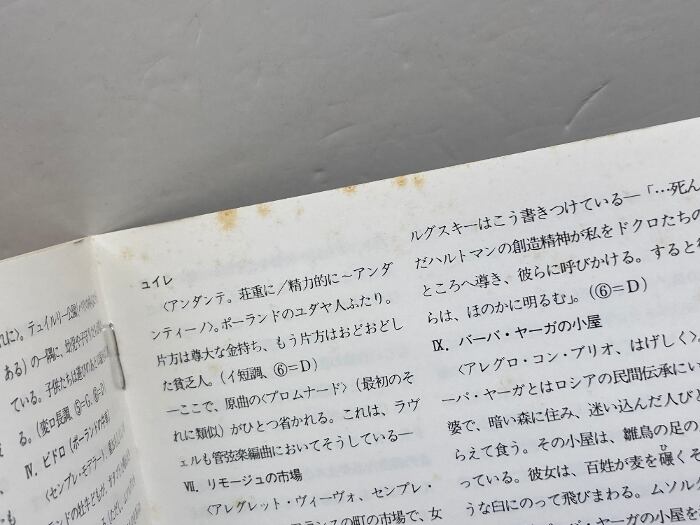 れに〉。テュイルリーの
ある)の一隅に、
ている。子供たちは
る。(変ロ長調、⑤=G、⑥=D)
Ⅳ. ビドロ(ポーランドの牛車)
〈センプレ・モデラート、
ュイレ
〈アンダンテ。荘重に/精力的に~アンダ
ンティーノ〉。ポーランドのユダヤ人ふたり。
片方は尊大な金持ち、もう片方はおどおどし
た貧乏人。(イ短調、⑥=D)
―ここで、原曲の〈プロムナード〉(最初のそ
れに類似)がひとつ省かれる。これは、ラヴ
ェルも管弦楽編曲においてそうしている―
Ⅶ. リモージュの市場
〈アレグレット・ヴィーヴォ、センプレ・
フランスの町の市場で、女
ルグスキーはこう書きつけている―「…死ん
だハルトマンの創造精神が私をドクロたちの
ところへ導き、彼らに呼びかける。すると
らは、ほのかに明るむ」。(⑥=D)
Ⅸ. バーバ・ヤーガの小屋
〈アレグロ・コン・ブリオ、はげしく〉。
ーバ・ヤーガとはロシアの民間伝承にい
婆で、暗い森に住み、迷い込んだ人びと
らえて食う。その小屋は、雛鳥の足の
っている。彼女は、百姓が麦を碾くそ
うな臼にのって飛びまわる。ムソル
バ・ヤーガの小屋を